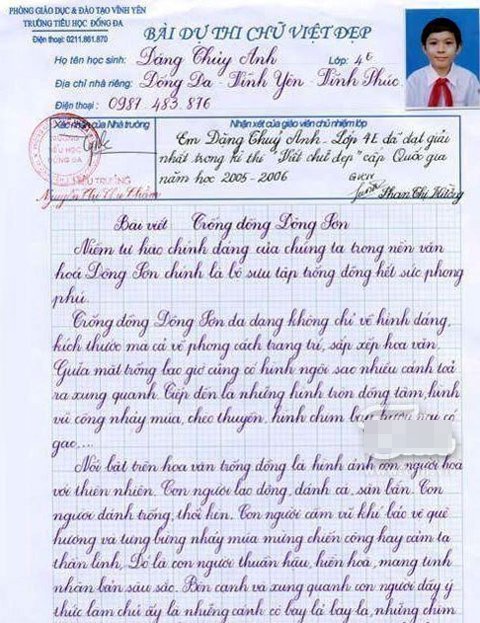 PHÒNG GIÁO DỤC & ĐÀO TẠO VĨNH YÊN
TRƯỜNG TIỂU HỌC ĐỐNG ĐA
Điện thoại: 0211.861.870
BÀI DỰ THI CHỮ VIỆT ĐẸP
Họ tên học sinh: Dáng Thủy Anh Lớp: 4E
Địa chỉ nhà riêng: Đống Đa - Vĩnh Yên - Vĩnh Phúc
Điện thoại: 0987 483 876
Xác nhận của Nhà trường
Nhận xét của giáo viên chủ nhiệm lớp
Em Dặng Thuỷ Anh - Lớp 4E đã đạt giải
nhất trong kì thi "Viết chữ đẹp" cấp Quốc gia
năm học 2005 - 2006
GVCN
Phan Thị Hường
Bài viết Trống đồng Đông Sơn
Niềm tự hào chính đáng của chúng ta trong nền văn
hoá Đông Sơn chính là bộ sưu tập trống đồng hết sức phong
phú.
Trống đồng Đông Sơn đa dạng không chỉ về hình dáng,
kích thước mà cả về phong cách trang trí, sắp xếp hoa văn.
Giữa mặt trống bao giờ cũng có hình ngôi sao nhiều cánh toả
ra xung quanh. Tiếp đến là những hình tròn đồng tâm, hình
vũ công nhảy múa, chèo thuyền, hình chim
gạc....
Nổi bật trên hoa văn trống đồng là hình ảnh con người hoà
với thiên nhiên. Con người lao động, đánh cá, săn bắn. Con
người đánh trống, thổi kèn. Con người cầm vũ khí bảo vệ quê
hương và tưng bừng nhảy múa mừng chiến công hay cảm tạ
thần linh, Đó là con người thuần hậu, hiền hoà, mang tính
nhân bản sâu sắc. Bên cạnh và xung quanh con người đầy ý
thức làm chủ ấy là những cánh cò bay lả bay la, những chim